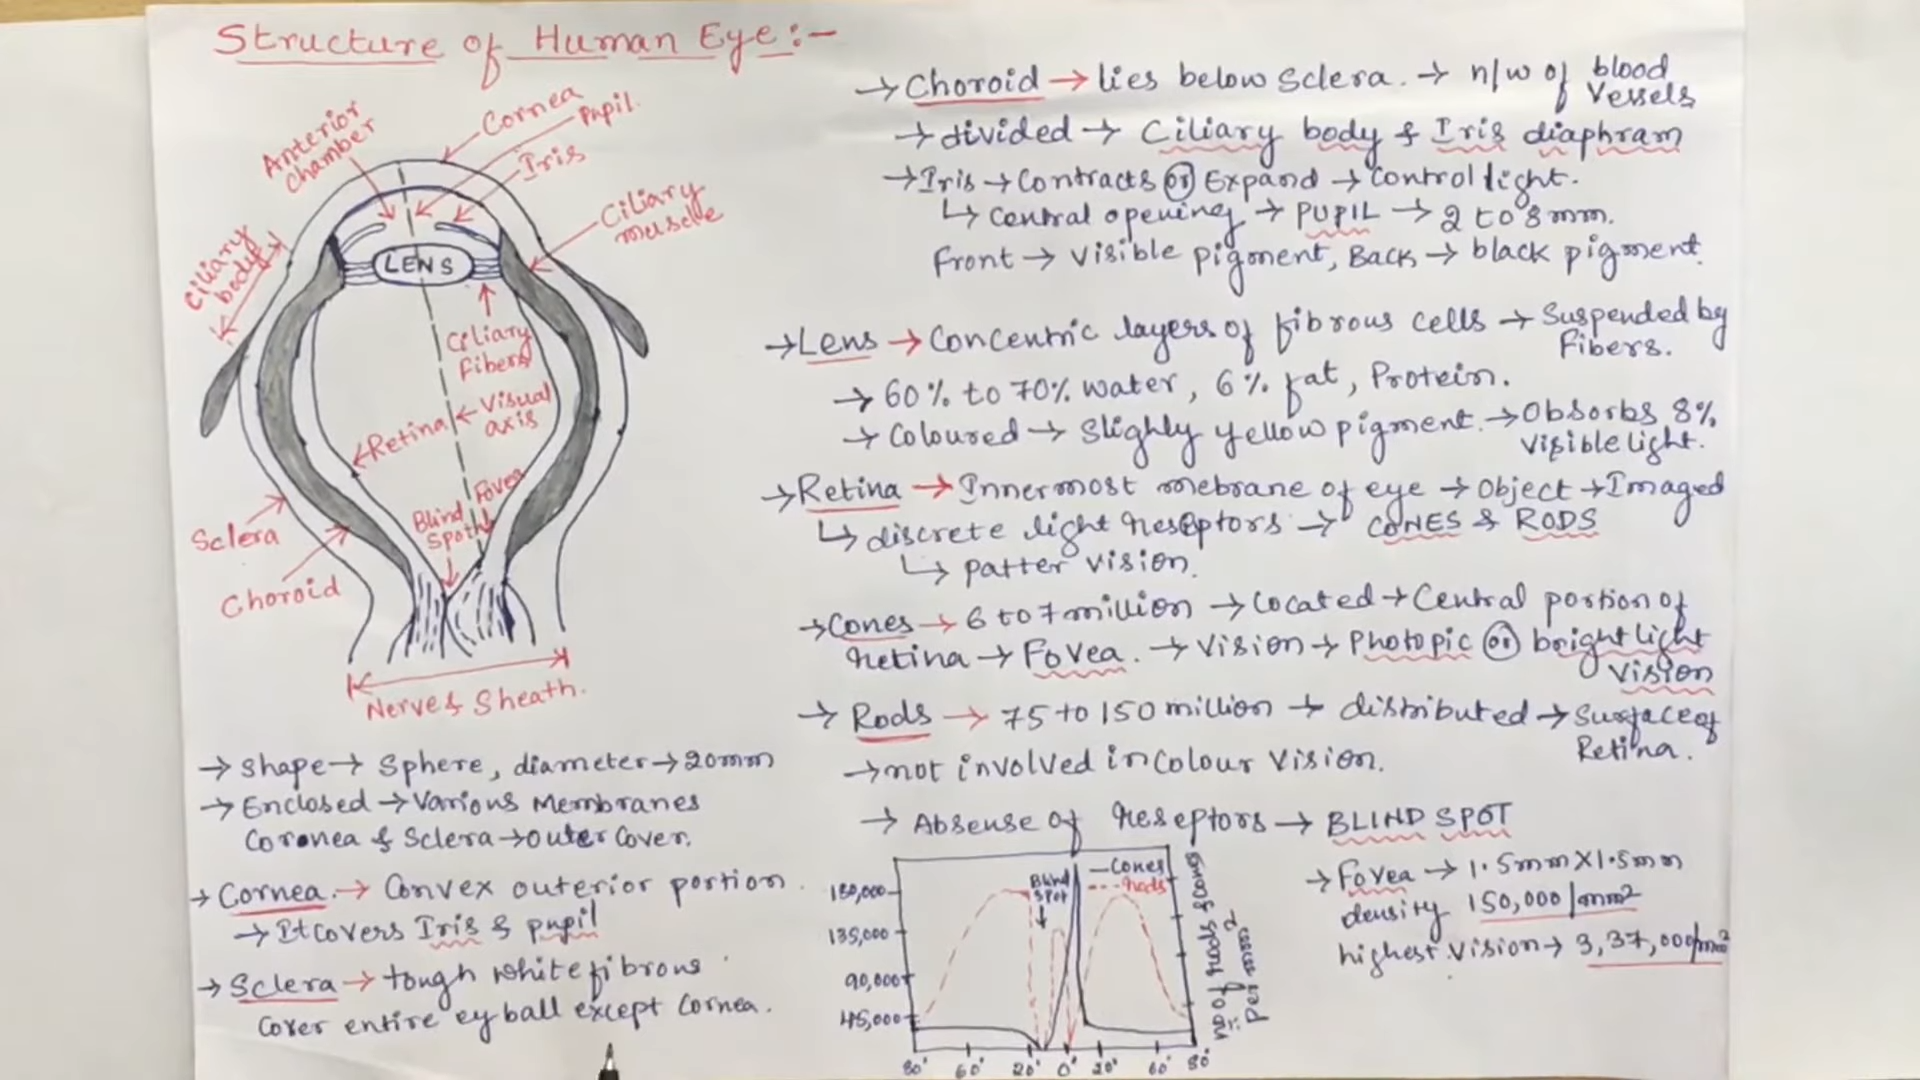 Structure of Human Eye:-
Anterior
chamber
Cornea
Pupil.
Iris
Ciliary
muscle
Ciliary
body
LENS
Ciliary
Fibers
Visual
axis
Retina
Fovea
Blind
Spot
Sclera
Choroid
Nerve & Sheath.
→ Shape → Sphere, diameter → 20mm
→ Enclosed → Various Membranes
Coronea & Sclera → outer Cover.
→ Cornea. → Convex outerior portion.
→ It covers Iris & pupil
→ Sclera → tough white fibrous
Cover entire ey ball except Cornea.
→ Choroid → lies below Sclera. → n/w of blood
Vessels
→ divided → Ciliary body & Iris diaphram
→ Iris → Contracts or Expand → Control light.
↳ Central opening → PUPIL → 2 to 8 mm.
Front → Visible pigment, Back → black pigment.
→ Lens → Concentric layers of fibrous cells → Suspended by
Fibers.
→ 60% to 70% water, 6% fat, Protein.
→ Coloured → Slighly yellow pigment. → Obsorbs 8%
Visible light.
→ Retina → Innermost mebrane of eye → Object → Imaged
↳ discrete light reseptors → CONES & RODS
↳ patter vision.
→ Cones → 6 to 7 million → Located → Central portion of
retina → Fovea. → Vision → Photopic or bright light
Vision
→ Rods → 75 to 150 million → distributed → Surface of
Retina.
→ not involved in Colour Vision.
→ Absense of reseptors → BLIND SPOT
→ Fovea → 1.5mm X 1.5mm
density 150,000/mm²
highest vision → 3,37,000/mm²
180,000
135,000
90,000
45,000
Blind
Spot
— Cones
--- rods
80° 60° 20° 0° 20° 60° 80°
no. of rods & cones
per mm²